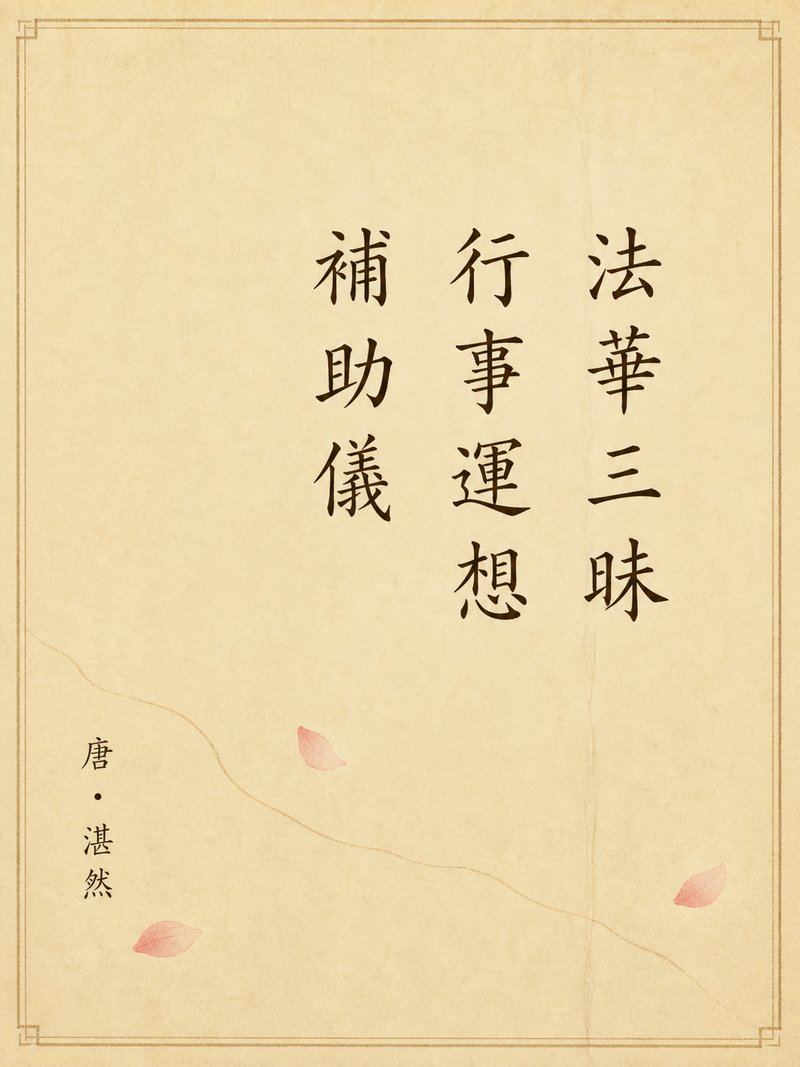 法華三昧
行事運想
補助儀
唐・湛然